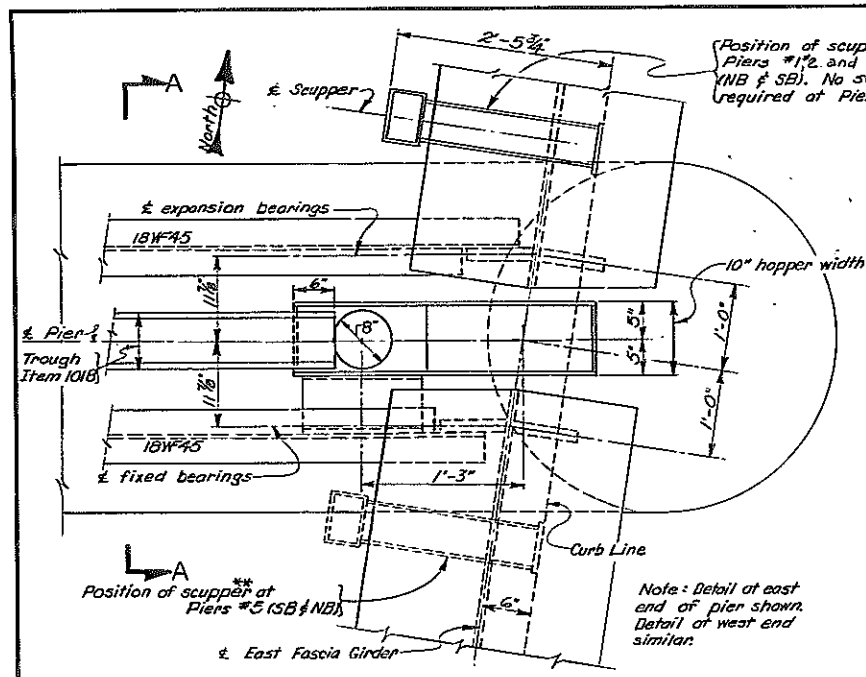 2'-5 3/4"
Position of scup
Piers #1, 2 and
(NB & SB). No s
required at Pie
A
North
℄ Scupper
℄ expansion bearings
18WF45
11 7/8"
6"
10" hopper width
8"
5"
5"
1'-0"
℄ Pier
Trough
Item 1018
5"
11 7/8"
1'-0"
18WF45
℄ fixed bearings
1'-3"
Curb Line
A
Position of scupper** at
Piers #5 (SB & NB)
6"
Note: Detail at east
end of pier shown.
Detail at west end
similar.
℄ East Fascia Girder